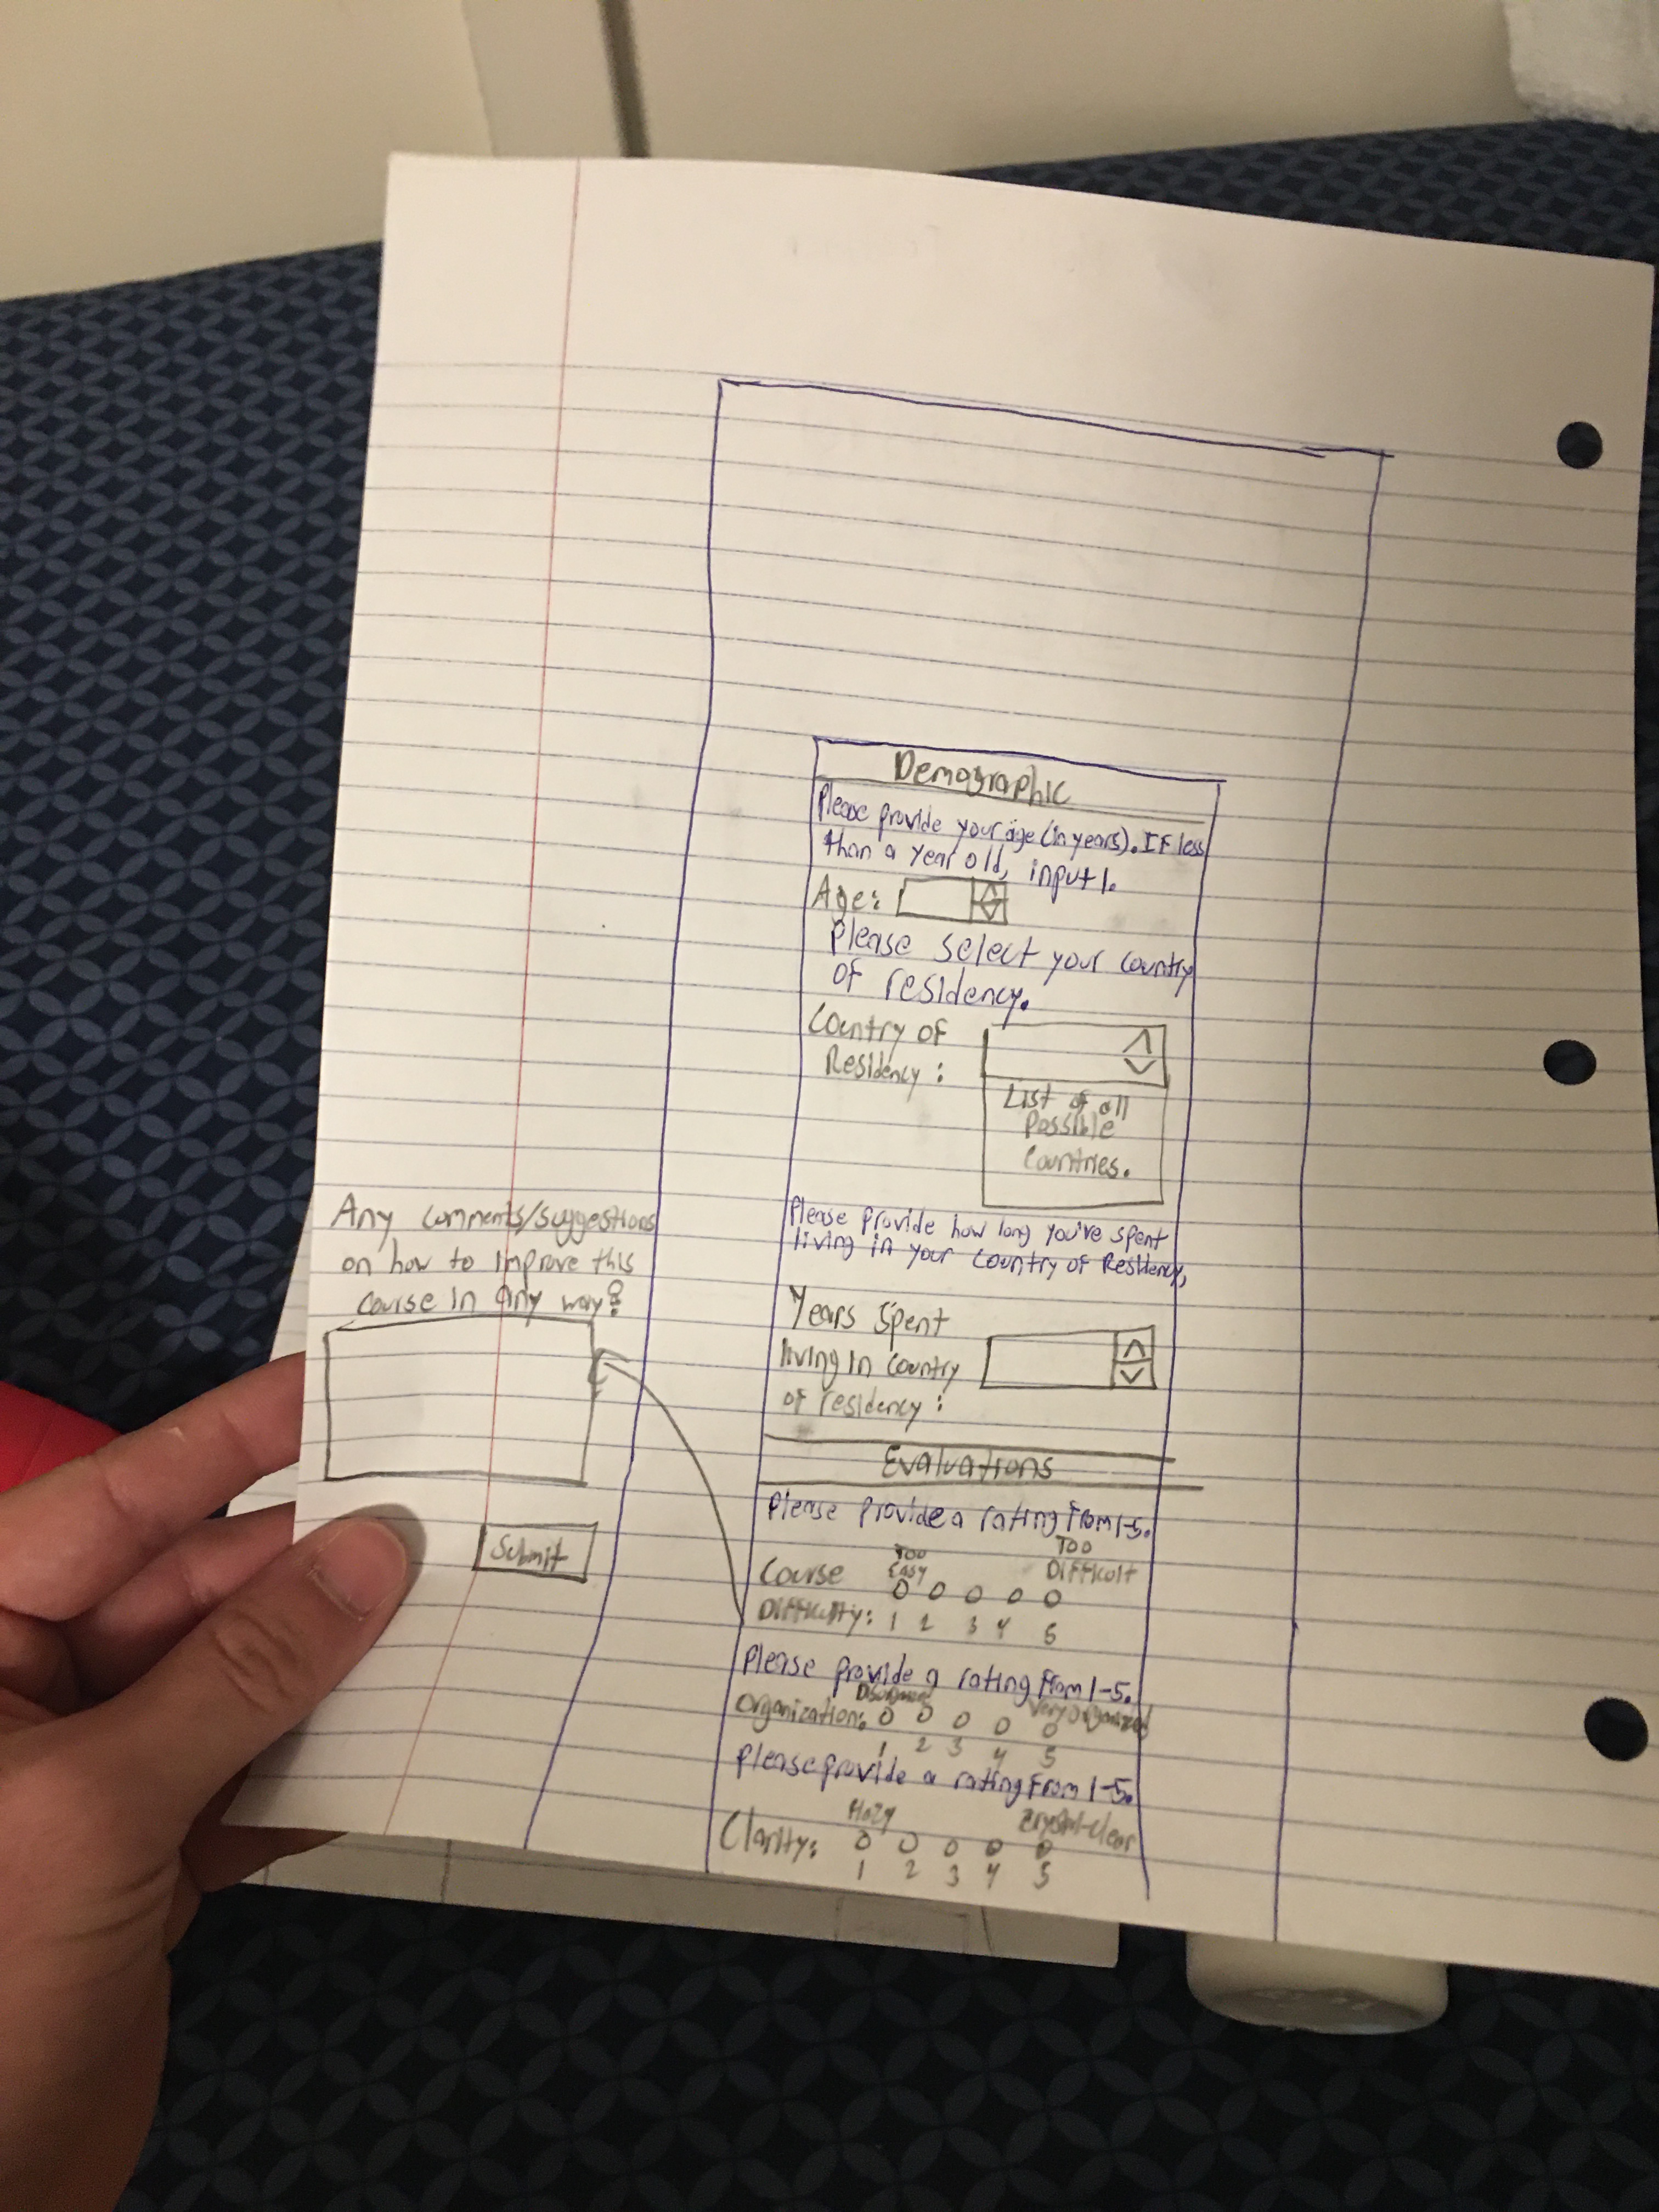 Demographic
Please provide your age (in years). If less
than a year old, input 1.
Age:
Please select your country
of residency.
Country of
Residency:
List of all
Possible
Countries.
Please provide how long you've spent
living in your country of Residency,
Years Spent
living in country
of residency:
Evaluations
Please provide a rating from 1-5.
Too Too
Course Easy Difficult
Difficulty: 1 2 3 4 5
Please provide a rating from 1-5.
Very Organized
Organization:
1 2 3 4 5
Please provide a rating from 1-5.
Hazy Crystal-clear
Clarity:
1 2 3 4 5
Any comments/suggestions
on how to improve this
course in any way?
Submit